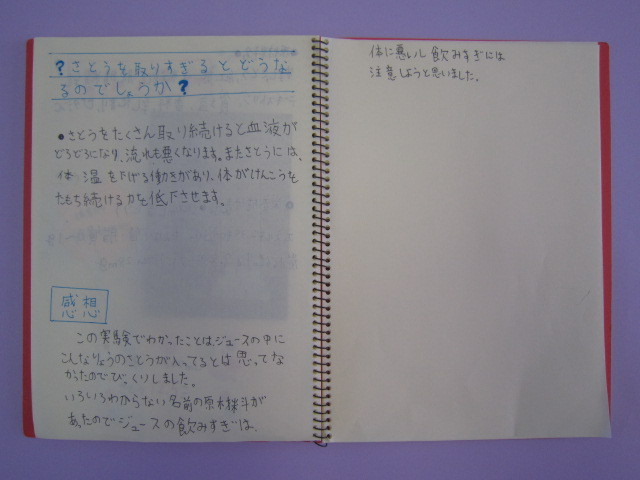 ?さとうを取りすぎるとどうな
るのでしょうか?
●さとうをたくさん取り続けると血液が
どろどろになり、流れも悪くなります。またさとうには、
体温を下げる働きがあり、体がけんこうを
たもち続ける力を低下させます。
感想
この実験でわかったことは、ジュースの中に
こんなりょうのさとうが入ってるとは思ってな
かったのでびっくりしました。
いろいろわからない名前の原材料が
あったのでジュースの飲みすぎは、
体に悪いし飲みすぎには
注意しようと思いました。